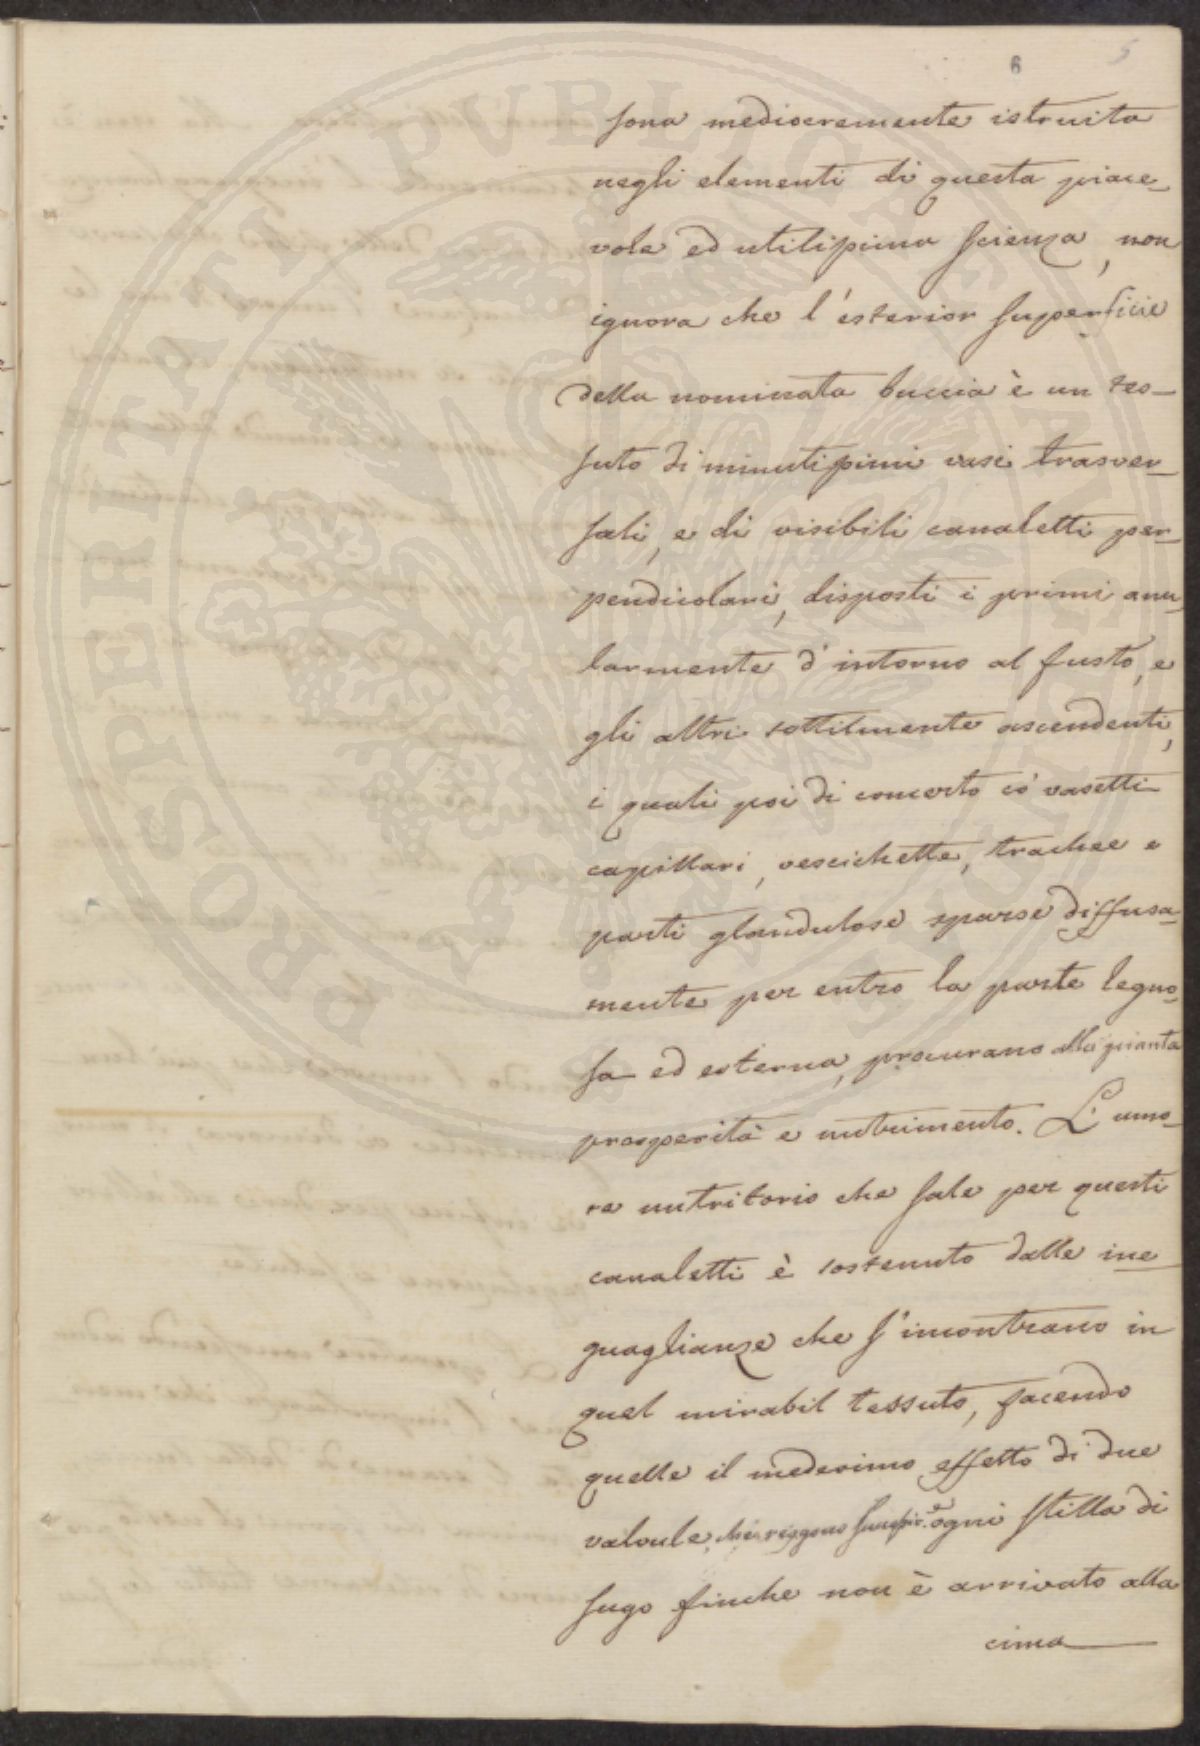 6 5
sona mediocremente istruita
negli elementi di questa piace-
vole ed utilissima scienza, non
ignora che l'esterior superficie
della nominata buccia è un tes-
suto di minutissimi vasi trasver-
sali, e di visibili canaletti per-
pendicolari, disposti i primi anu-
larmente d'intorno al fusto, e
gli altri sottilmente ascendenti,
i quali poi di concerto co' vasetti
capillari, vescichette, trachee e
parti glandulose sparse diffusa-
mente per entro la parte legno-
sa ed esterna, procurano alla pianta
prosperità e nutrimento. L'umo-
re nutritorio che sale per questi
canaletti è sostenuto dalle ine
guaglianze che s'incontrano in
quel mirabil tessuto, facendo
quelle il medesimo effetto di due
valvule, che reggono ogni stilla di
sugo finche non è arrivato alla
cima
PROSPERITATI PVBLICAE